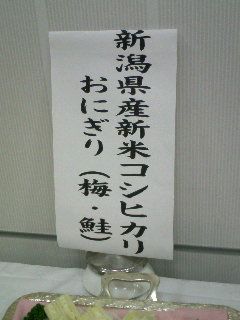 新潟県産新米コシヒカリ
おにぎり（梅・鮭）